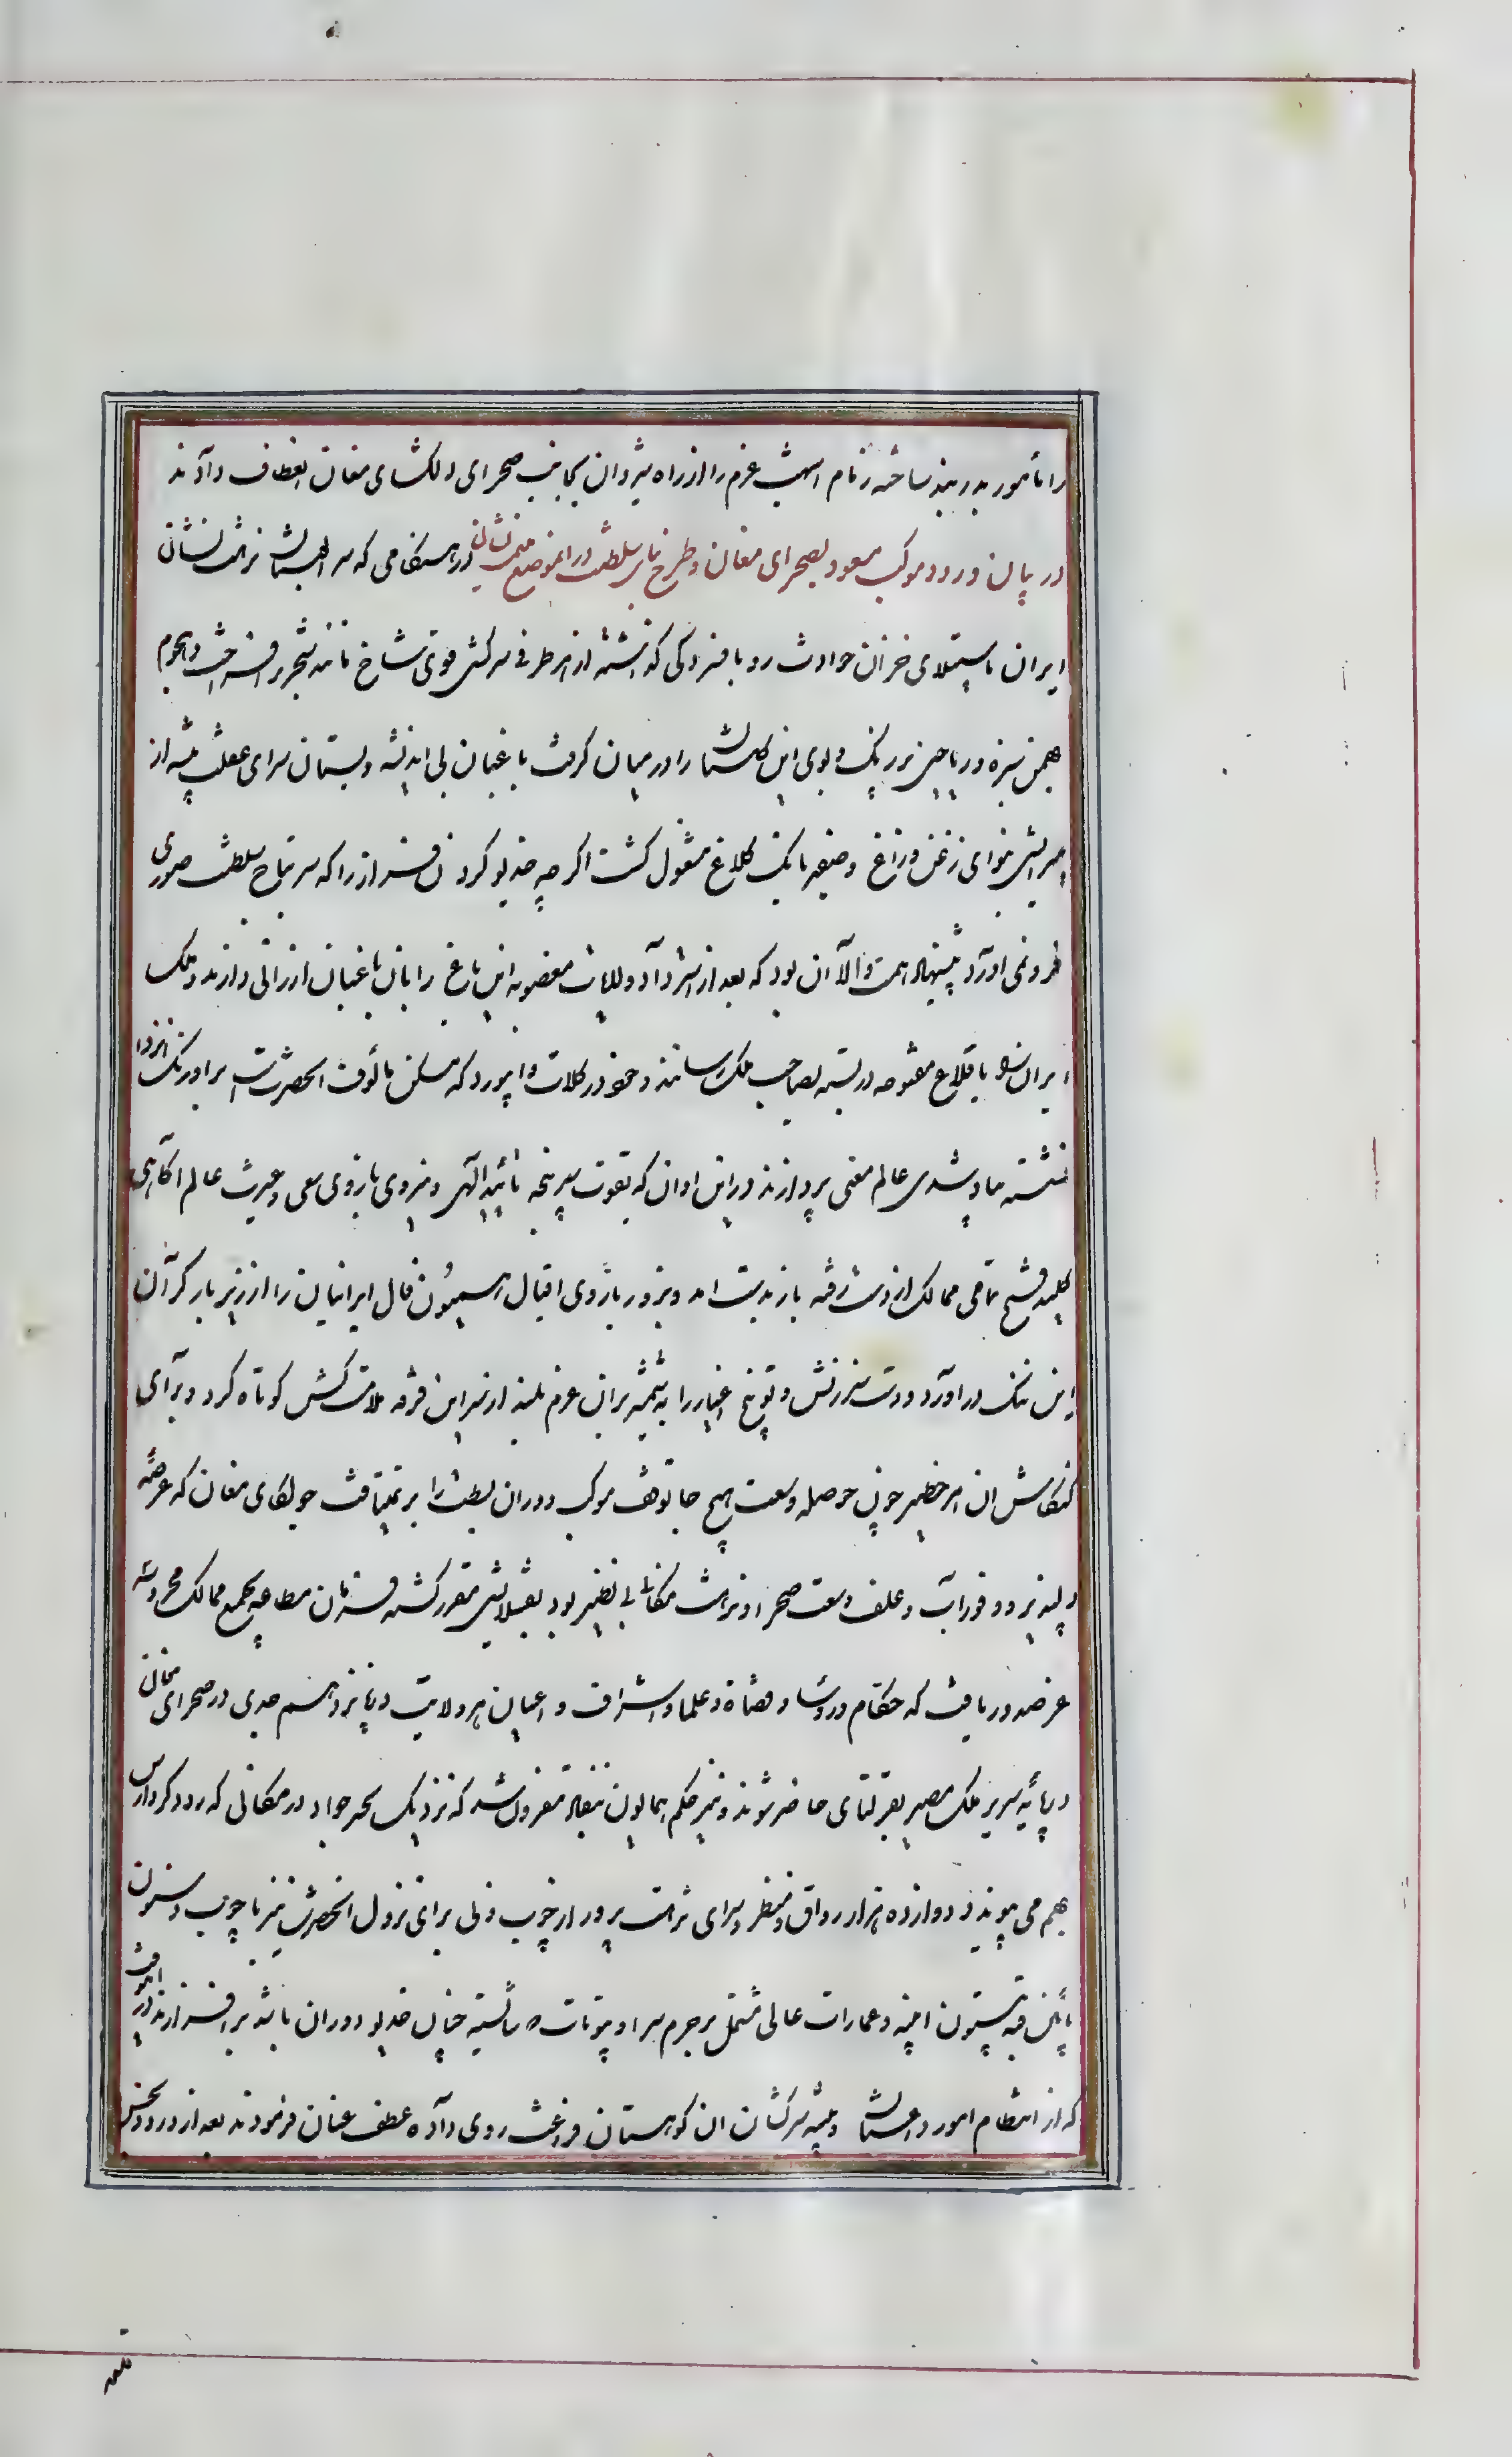 را مأمور بدربند ساخته زمام اشهب عزم را از راه شیروان بجانب صحرای دلکشای مغان انعطاف دادند
در بیان ورود موکب مسعود بصحرای مغان و طرح بنای سلطنت در انموضع میمنت نشان در هنگامی که سرابستان نزهت نشان
ایران باستیلای خزان حوادث رو بافسردگی گذاشته از هر طرفی سرکشی قوی شاخ مانند شجر برافراخت و هجوم
همن سبزه و ریاحین نو رنک و بوی این گلستان را در میان گرفت باغبان بی اندیشه بستان سرای غفلت پیشه از
بنوای زغن و زاغ و صفیر بانک کلاغ مشغول کشت اگر چه خدیو گردون فراز را که سر بتاج سلطنت صوری
فرو نمی اورد پیشنهاد همت والا آن بود که بعد از استرداد ولایات مغصوبه این باغ را بان باغبان ارزانی دارند و ملک
ایران را با قلاع مقبوضه دربسته بصاحب ملک رسانند و خود در کلات و ابیورد که مسکن مألوف انحضرت است بر اورنک انزوا
نشسته بپادشاهی عالم معنی پردازند در این اوان که بقوت سرپنجه تائید الهی و نیروی بازوی سعی و غیرت عالم اکاهی
کلید فتح تمامی ممالک از دست رفته باز بدست امد و بزور بازوی اقبال همیون فال ایرانیان را از زیر بار گران
این ننک در اورد و دست سرزنش و توبیخ اغیار را بشمشیر بران عزم بلند از سر این فرقه ملامت کش کوتاه کرد و برای
کنکاش ان امر خطیر چون حوصله وسعت هیچ جا توقف موکب دوران بسطت را بر نمیتافت جولکای مغان که عرصه
دلپذیر و وفور آب و علف وسعت صحرا و نزهت مکان بی نظیر بود بقشلامیشی مقرر کشته فرمان مطاعه بجمیع ممالک محروسه
عز صدور یافت که حکام و رؤسا و قضاة و علما و اشراف و اعیان هر ولایت در پانزدهم جدی در صحرای مغان
در پایه سریر ملک مصیر بقرلتای حاضر شوند و نیز حکم همایون بنفاذ مقرون شد که نزدیک بجسر جواد در مکانی که رود کر و ارس
بهم می پیوندند دوازده هزار رواق و منظر و سرای نزهت پرور از چوب و نی برای نزول انحضرت نیز با چوب و ستون
باین قبه بیستون ابنیه و عمارات عالی مشتمل بر حرم سرا و بیوتات که شایسته چنان خدیو دوران باشد برافرازند در انوقت
که از انتظام امور داغستان و تنبیه سرکشان ان کوهستان فراغت روی داده عطف عنان فرمودند بعد از ورود بحسن
قلعه